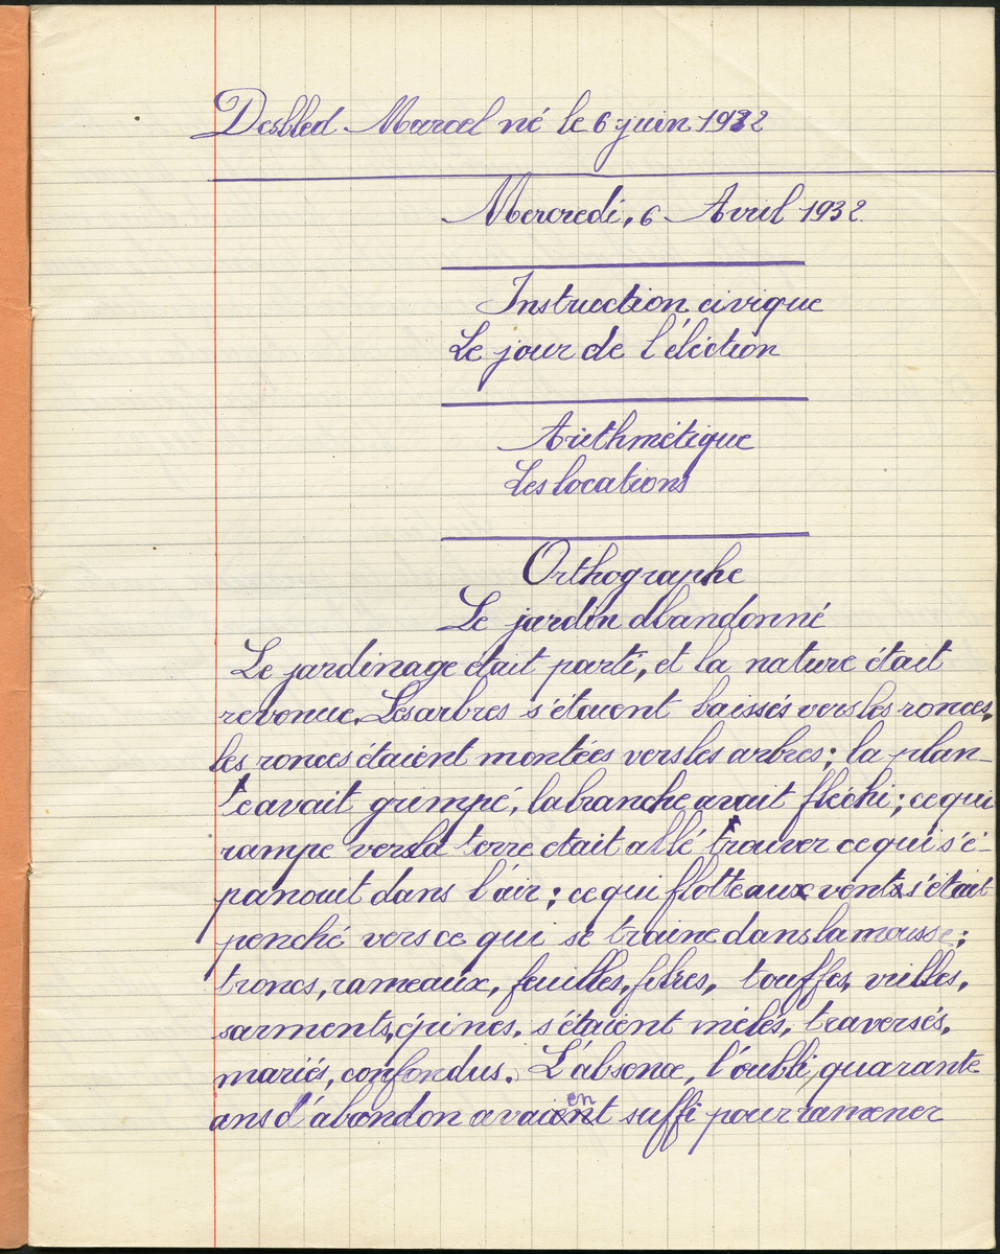 Desbled Marcel né le 6 juin 1932
Mercredi, 6 Avril 1932
Instruction civique
Le jour de l'éléction
Arithmétique
Les locations
Orthographe
Le jardin abandonné
Le jardinage était parti, et la nature était
revenue, Les arbres s'étaient baissés vers les ronces,
les ronces étaient montées vers les arbres ; la plan-
te avait grimpé, la branche avait fléchi ; ce qui
rampe vers la terre etait allé trouver ce qui s'é-
panouit dans l'air ; ce qui flotte aux vents s'était
penché vers ce qui se traine dans la mousse ;
troncs, rameaux, feuilles, fibres, touffes, vrilles,
sarments, épines, s'étaient mêlés, traversés,
mariés, confondus. L'absence, l'oubli, quarante
ans d'abandon avaient suffi pour ramener